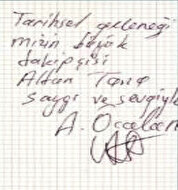 Tarihsel geleneği
mizin büyük
takipçisi
Altan Tan'a
saygı ve sevgiyle
A. Öcalan